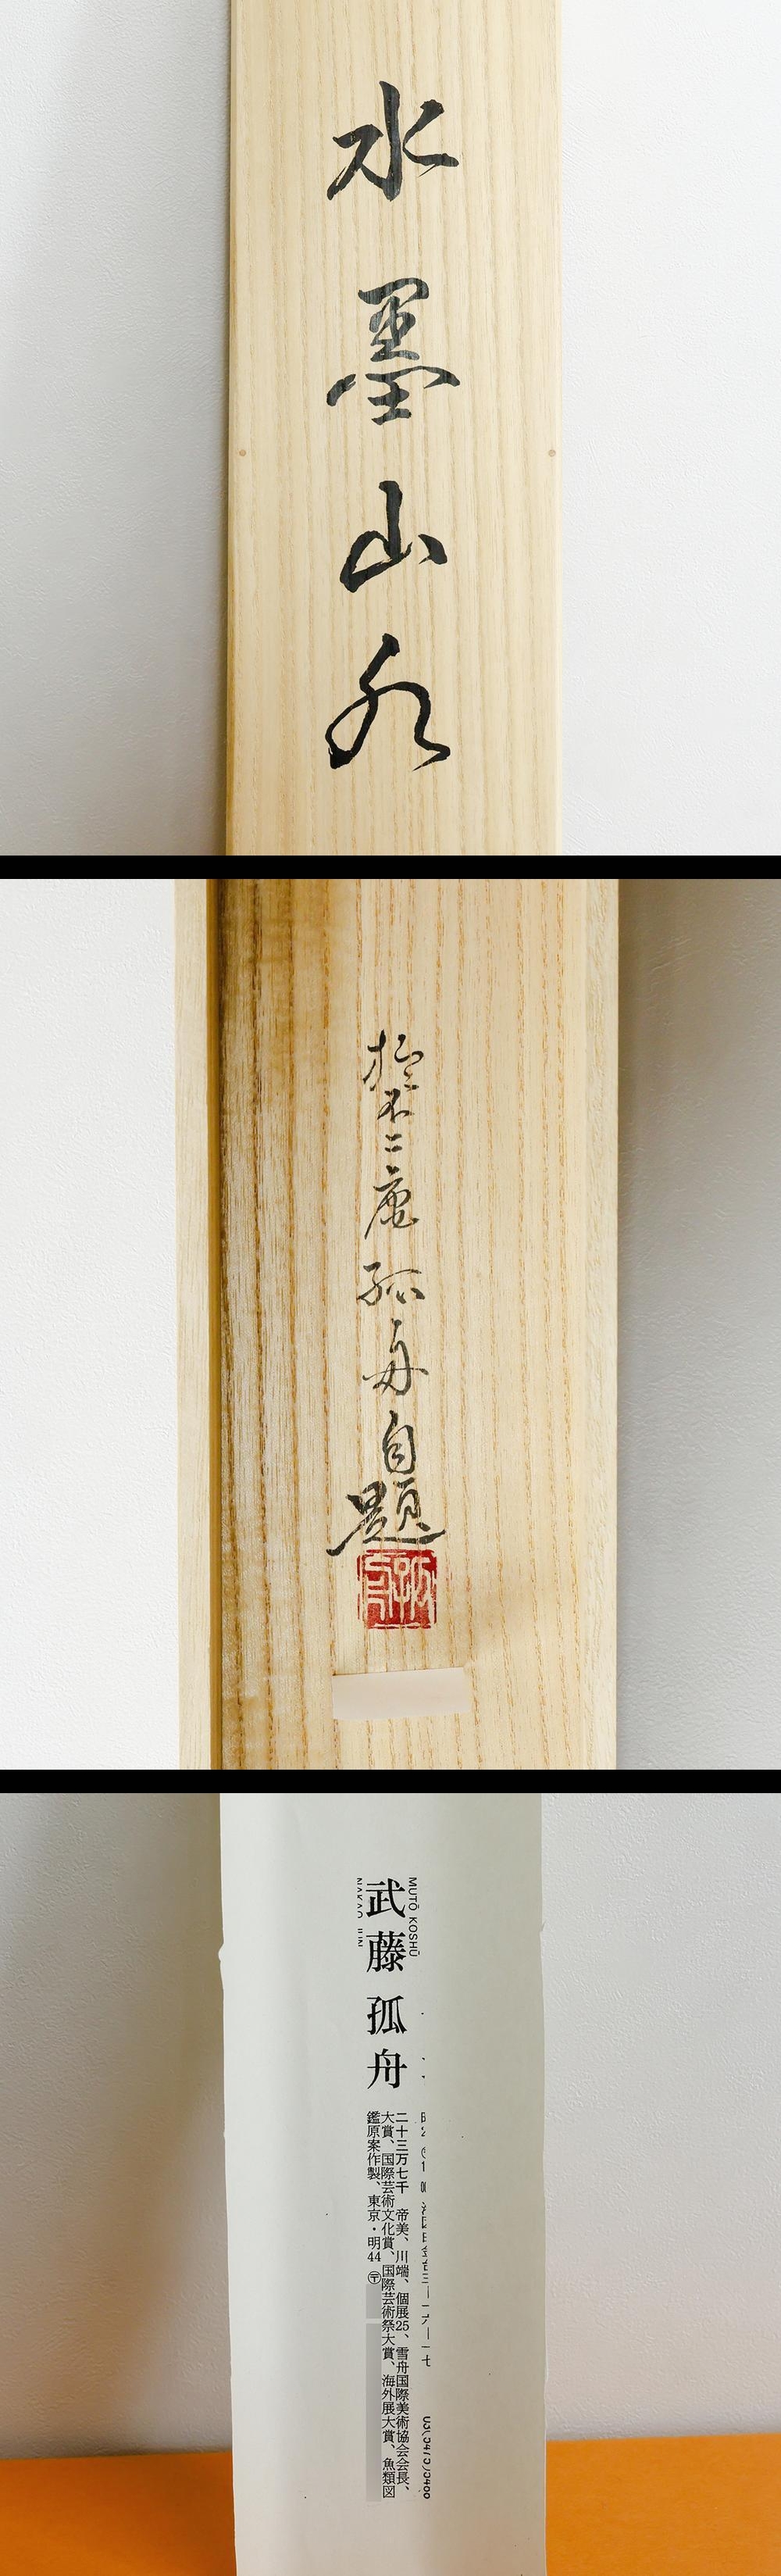 水墨山水
不二庵孤舟自題
孤舟
MUTŌ KOSHŪ
武藤孤舟
NAKAO JUN
二十三万七千 帝美、川端、個展25、雪舟国際美術協会会長、
大賞、国際芸術文化賞、国際芸術祭大賞、海外展大賞、魚類図
鑑原案作製、東京・明44 〒